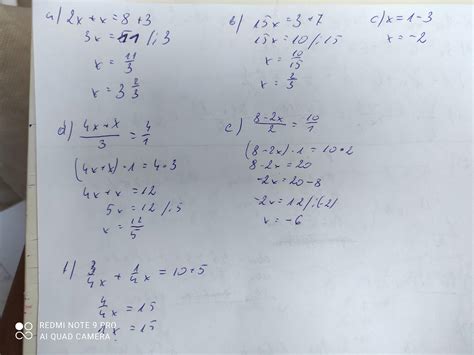 a) 2x + x = 8 + 3
3x = 11 /:3
x = 11/3
x = 3 2/3
b) 15x = 3 + 7
15x = 10 /:15
x = 10/15
x = 2/3
c) x = 1 - 3
x = -2
d) (4x + x)/3 = 4/1
(4x + x) · 1 = 4 · 3
4x + x = 12
5x = 12 /:5
x = 12/5
e) (8 - 2x)/2 = 10/1
(8 - 2x) · 1 = 10 · 2
8 - 2x = 20
-2x = 20 - 8
-2x = 12 /:(-2)
x = -6
f) 3/4x + 1/4x = 10 + 5
4/4x = 15
1x = 15
REDMI NOTE 9 PRO
AI QUAD CAMERA